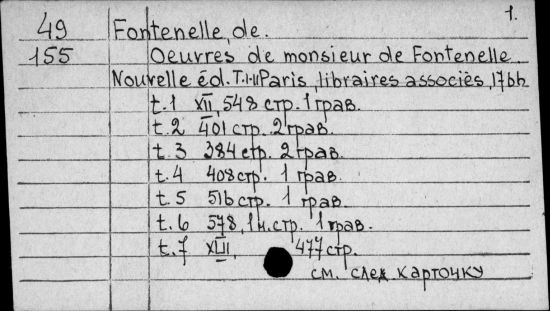 1.
49 Fontenelle, de.
155 Oeuvres de monsieur de Fontenelle.
Nouvelle éd. T. I-II Paris, libraires associés, 1766
t.1 XII, 548 стр. 1 грав.
t.2 401 стр. 2 грав.
t.3 384 стр. 2 грав.
t.4 408 стр. 1 грав.
t.5 516 стр. 1 грав.
t.6 578, 1 н.стр. 1 грав.
t.7 XLII, 477 стр.
см. след карточку